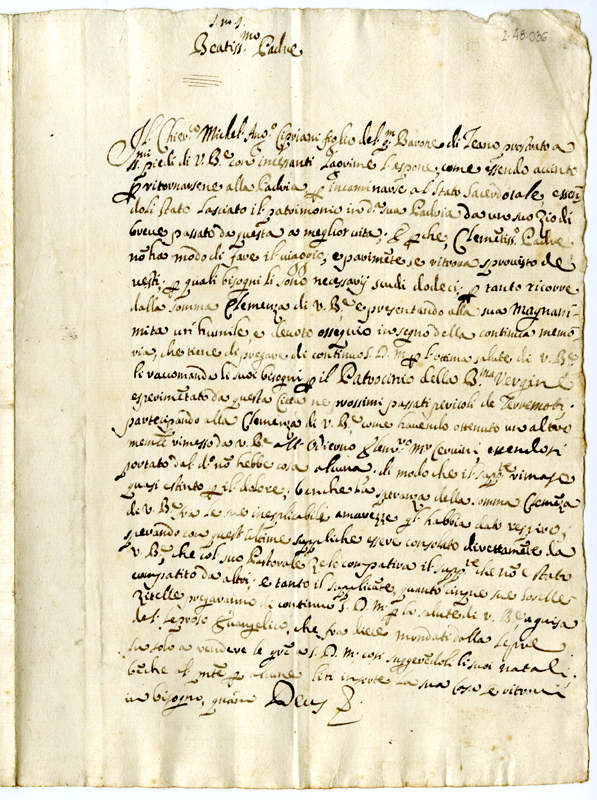 2-48-036
Beatiss.mo Padre
Il Chier.co Michel Ang.o Cipriani figlio del q.m Barone di Teano prostrato a
S.mi piedi di V. B.e con incessanti lagrime l'espone, come essendo accinto
ritornarsene alla Padria p incaminarse al stato sacerdotale, essen
doli stato lasciato il patrimonio in d.a sua Padria da un suo Zio di
breve passato da questa a meglior vita. E perche, Clemētiss.o Padre
nō ha modo di fare il viaggio, e parimēte se ritrova sprovisto de
vesti, p quali bisogni li sono necessarij scudi dodeci; p tanto ricorre
dalla somma Clemenza di V. B.e e presentando alla sua Magnani-
mità un humile, e devoto ossequio in segno della continua memo
ria, che tiene di pregare di continuo S. D. M. p l'ottima salute di V. B.e
li raccomanda li suoi bisogni p il Patrocinio della B.ma Vergine
esperimētato da questa Città ne prossimi passati pericoli de Terremoti.
partecipando alla Clemenza di V. B. come havendo ottenuto un altra
mente rimesso da V. B.e all' Odierno Elem.ro M.r Cervini essendosi
portato dal d.o nō hebbe cosa alcuna: di modo che il supp.te rimase
quasi estinto p il dolore; benche la speranza della somma Clemēza
di V. B.e fra le sue inesplicabile amarezze gl' habbia dato respiro,
sperando con quest' ultime suppliche essere consolato direttamēte da
V. B.e, che col suo Pastorale zelo compatirà il supp.te che nō è stato
compatito da altri; e tanto il supplicāte, quanto cinque sue sorelle
Zitelle pregaranno di continuo S. D. M. p la salute di V. B.e, a guisa
del leproso Evangelico, che fra diece mondati dalla lepre
fu solo a rendere le gr.e a S. D. M. così suggerēdoli li suoi natali,
benche al pnte p alcune liti insorte la sua Casa se ritrovi
in bisogno, quam Deus &